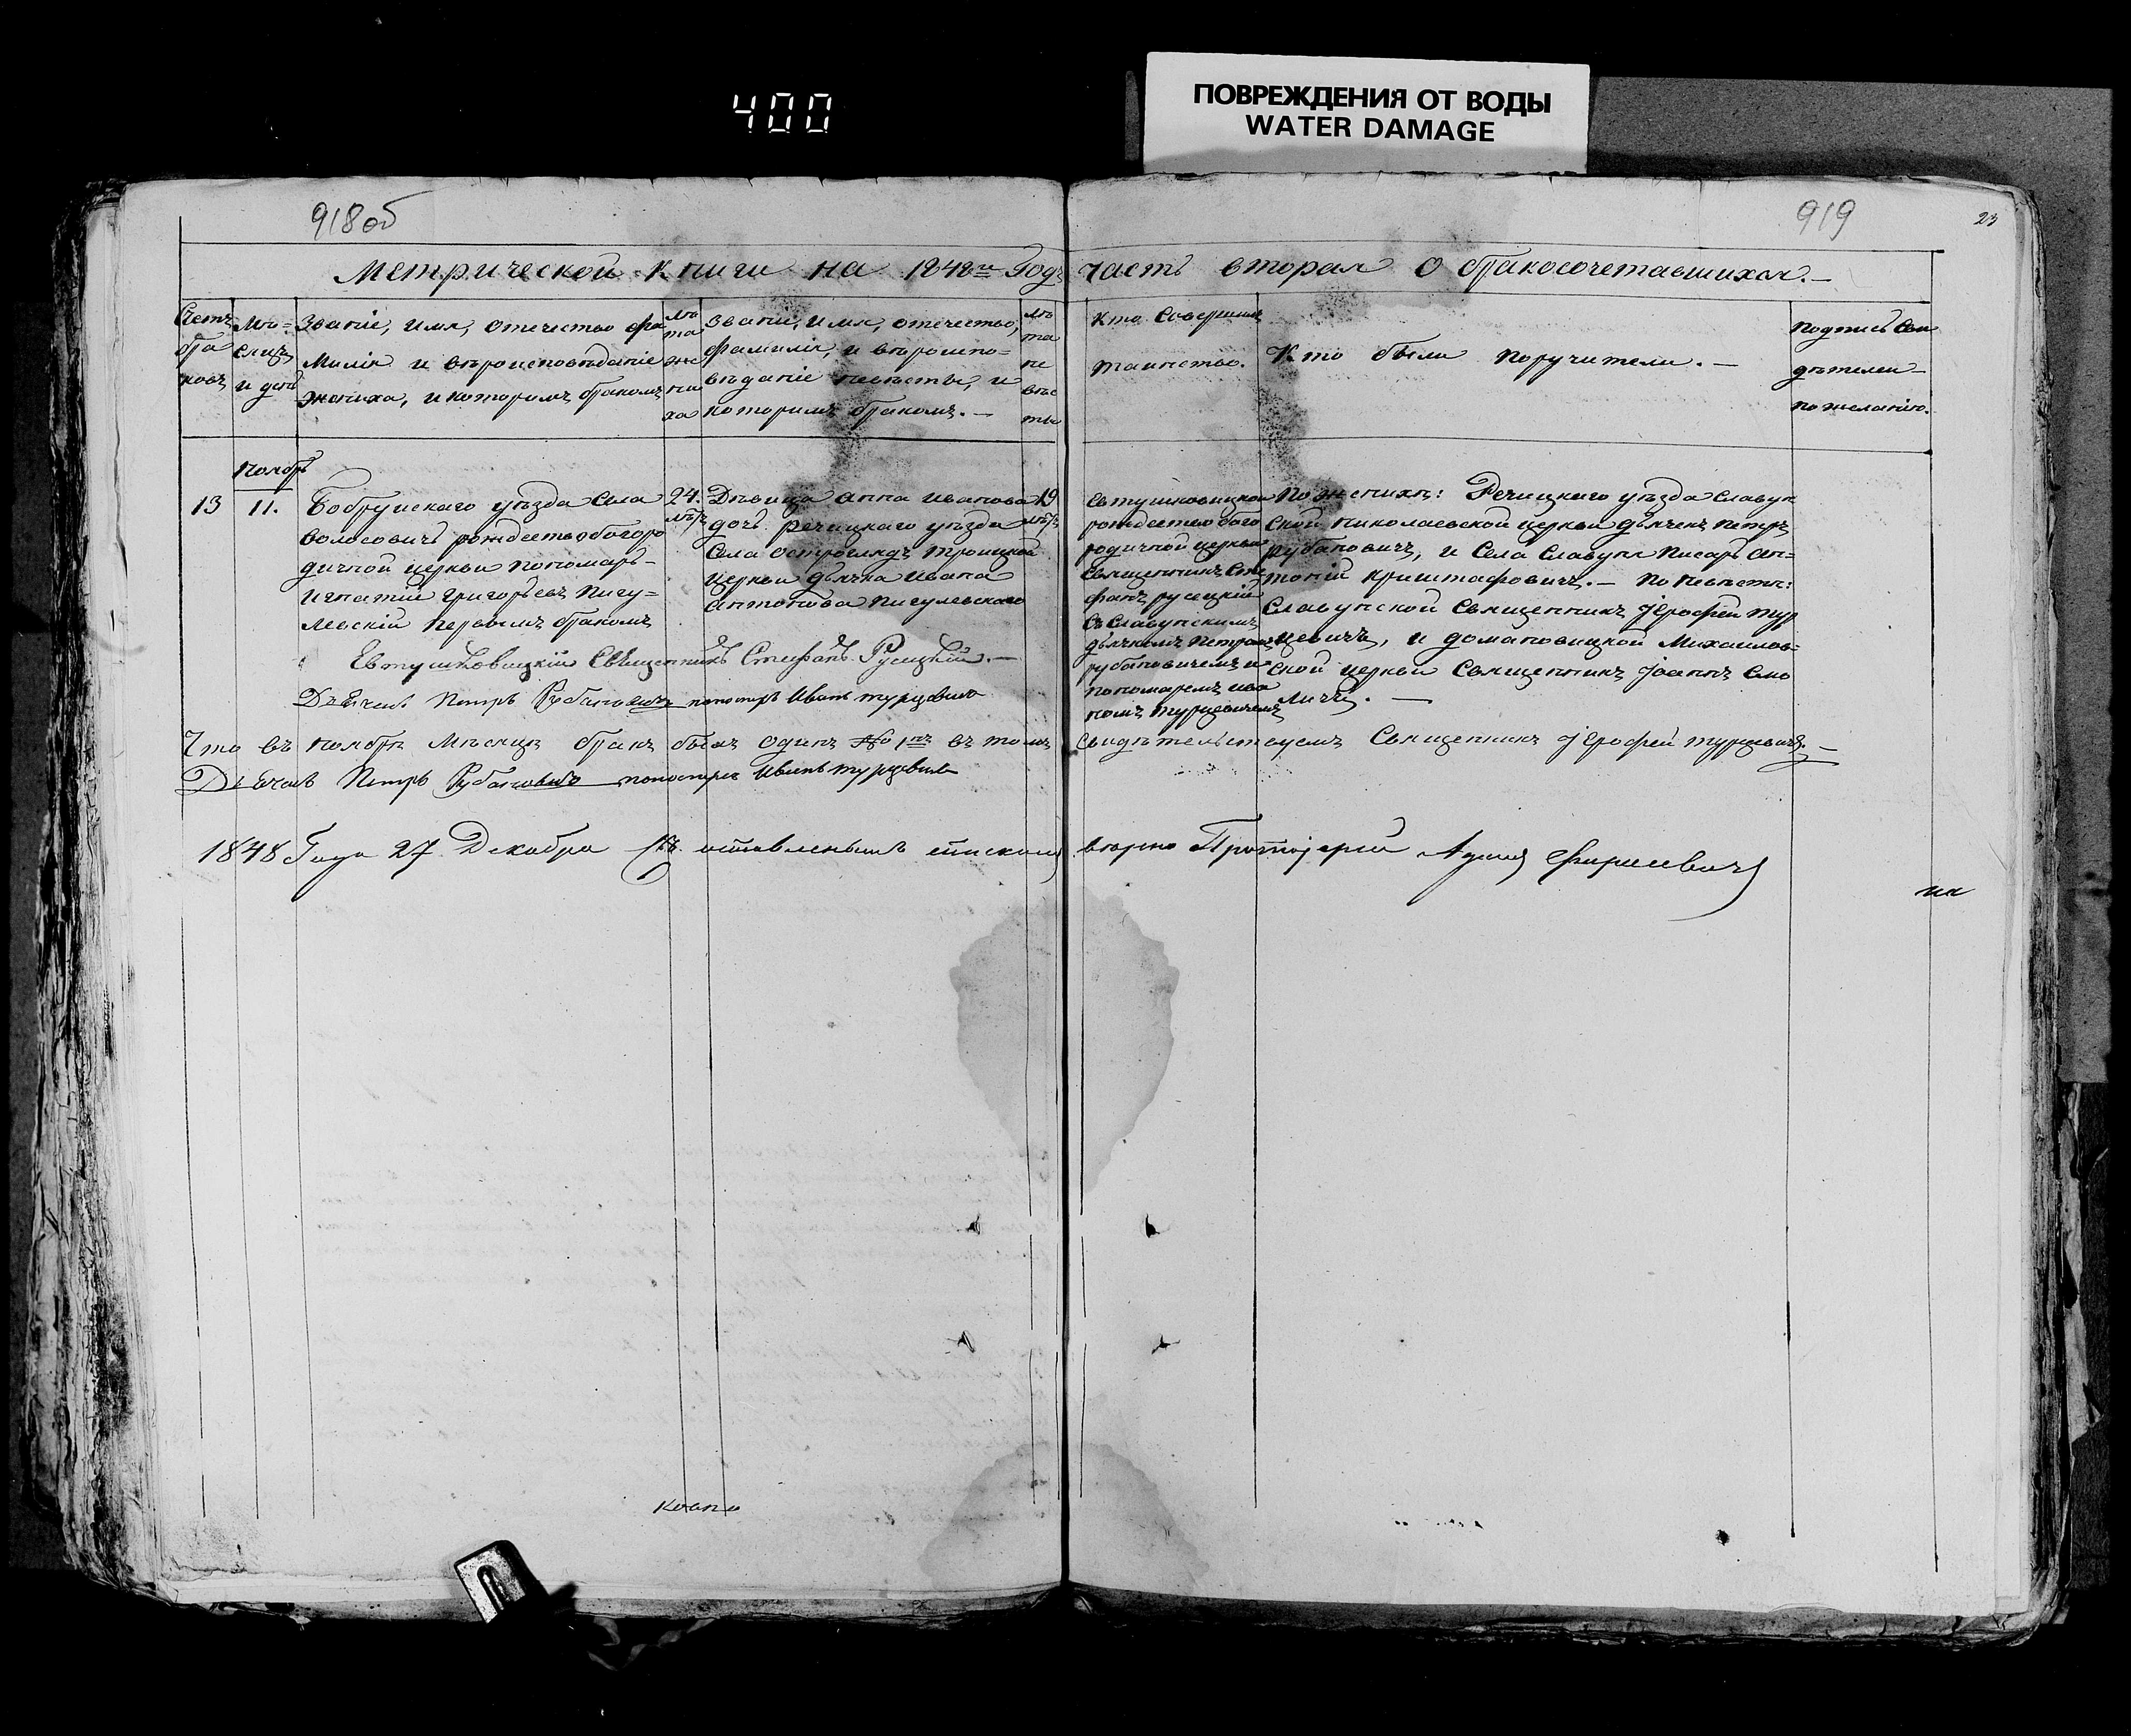 400
ПОВРЕЖДЕНИЯ ОТ ВОДЫ
WATER DAMAGE
918об
919
23
Метрической книги на 1848й Годъ часть вторая о бракосочетавшихся.—
Счетъ
бра
ковъ
Мѣ=
сяцъ
и дни
Званіе, имя, отечество фа
милія и вѣроисповѣданіе
жениха, и которымъ бракомъ
лѣ
та
же
ни
ха
Званіе, имя, отечество,
фамилія, и вѣроиспо=
вѣданіе невѣсты, и
которымъ бракомъ.—
лѣ
та
не
вѣс
ты
Кто Совершилъ
таинство.
Кто были поручители.—
Подпись Сви
дѣтелей
по желанію.
Ноябрь
13
11.
Бобруйскаго уѣзда Села
Волосовичъ рождество богоро
дичной церкви пономарь
Игнатій Григорьевъ Пигу=
левскій первымъ бракомъ
24.
лѣтъ
Дѣвица Анна Иванова
дочь Речицкаго уѣзда
Села Остроглядъ Троицкой
церкви дьячка Ивана
Антонова Пигулевскаго
19
лѣтъ
Евтушковицкой
рождество бого
родичной церкви
Священникъ Сте
фанъ Русецкій
съ Славунскимъ
дьячкомъ Петромъ
Рубановичемъ и
пономаремъ Ива
номъ Турцевичемъ
По женихѣ: Речицкаго уѣзда Славун
ской Николаевской церкви дьячекъ Петръ
Рубановичъ, и Села Славуня Писарь Ан=
тоній Криштафовичъ.— По невѣстѣ:
Славунской Священникъ Іерофей Тур
цевичъ, и домановицкой Михайлов=
ской церкви Священникъ Іоаннъ Смо
личъ.—
Евтушковицкій Священникъ Стефанъ Русецкій.—
Дьячекъ Петръ Рубановичъ пономарь Иванъ Турцевичъ
Что въ ноябрѣ Мѣсяцѣ бракъ былъ одинъ № 1й въ томъ Свидѣтельствуемъ Священникъ Іерофей Турцевичъ.—
Дьячекъ Петръ Рубановичъ пономарь Иванъ Турцевичъ
1848 Года 27 Декабря Съ оставленымъ спискомъ вѣрно Протоіерей Адамъ